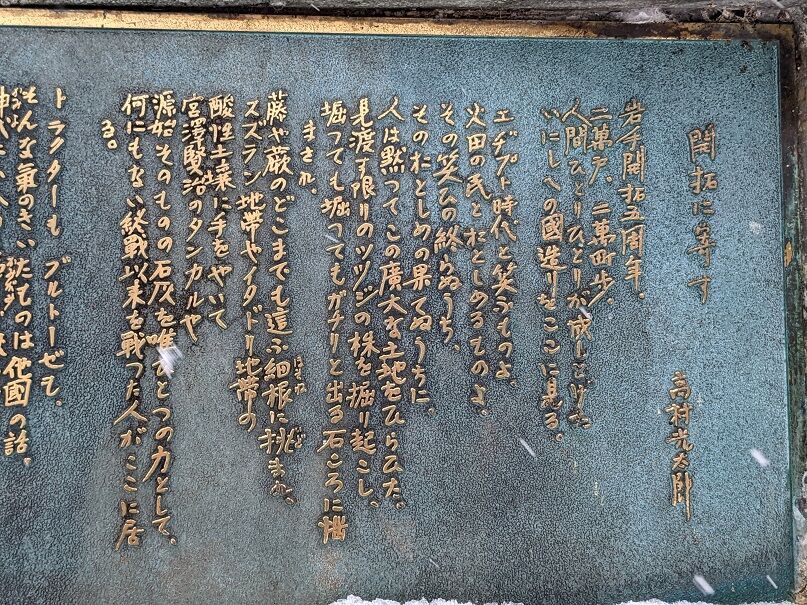 開拓に寄す
高村光太郎
岩手開拓五周年、
二萬戸、二萬町歩、
人間ひとりひとりが成しとげた
いにしへの國造りをここに見る。
エヂプト時代と笑ふものよ、
火田の民とおとしめるものよ、
その笑ひの終らぬうち、
そのおとしめの果てぬうちに、
人は黙つてこの廣大な土地をひらひた。
見渡す限りのツツジの株を掘り起こし、
掘つても掘つてもガチリと出る石ころに悩
まされ、
藤や蕨のどこまでも這ふ細根に挑まれ、
スズラン地帯やイタドリ地帯の
酸性土壌に手をやいて
宮澤賢治のタンカルや
源始そのものの石灰を唯ひとつの力として、
何にもない終戦以来を戦つた人がここに居
る。
トラクターもブルトーゼも、
そんな氣のきいたものは他國の話、